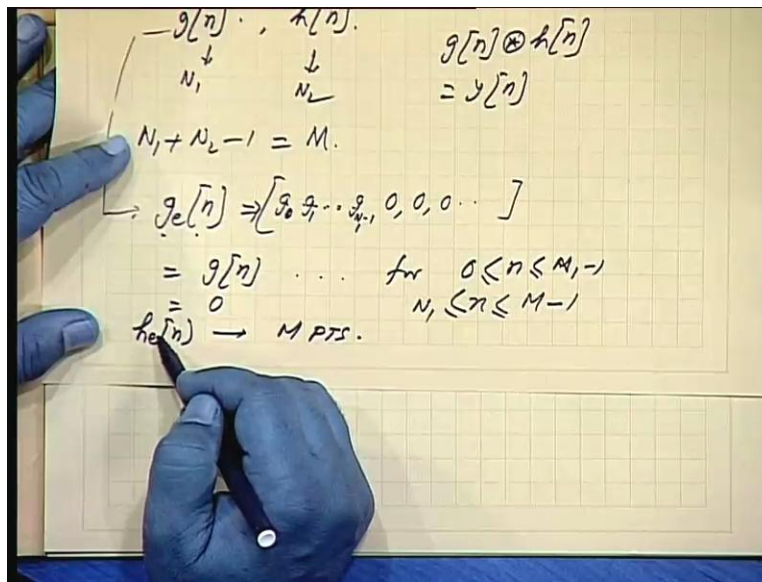 g[n] . , h[n].
↓ ↓
N₁ N₂
g[n] ⊛ h[n]
= y[n]
N₁ + N₂ - 1 = M.
gₑ[n] ⇒ [g₀ g₁ ... g_{N₁-1}, 0, 0, 0 ... ]
= g[n] ... for 0 ≤ n ≤ N₁-1
= 0 N₁ ≤ n ≤ M-1
hₑ[n] → M PTS.